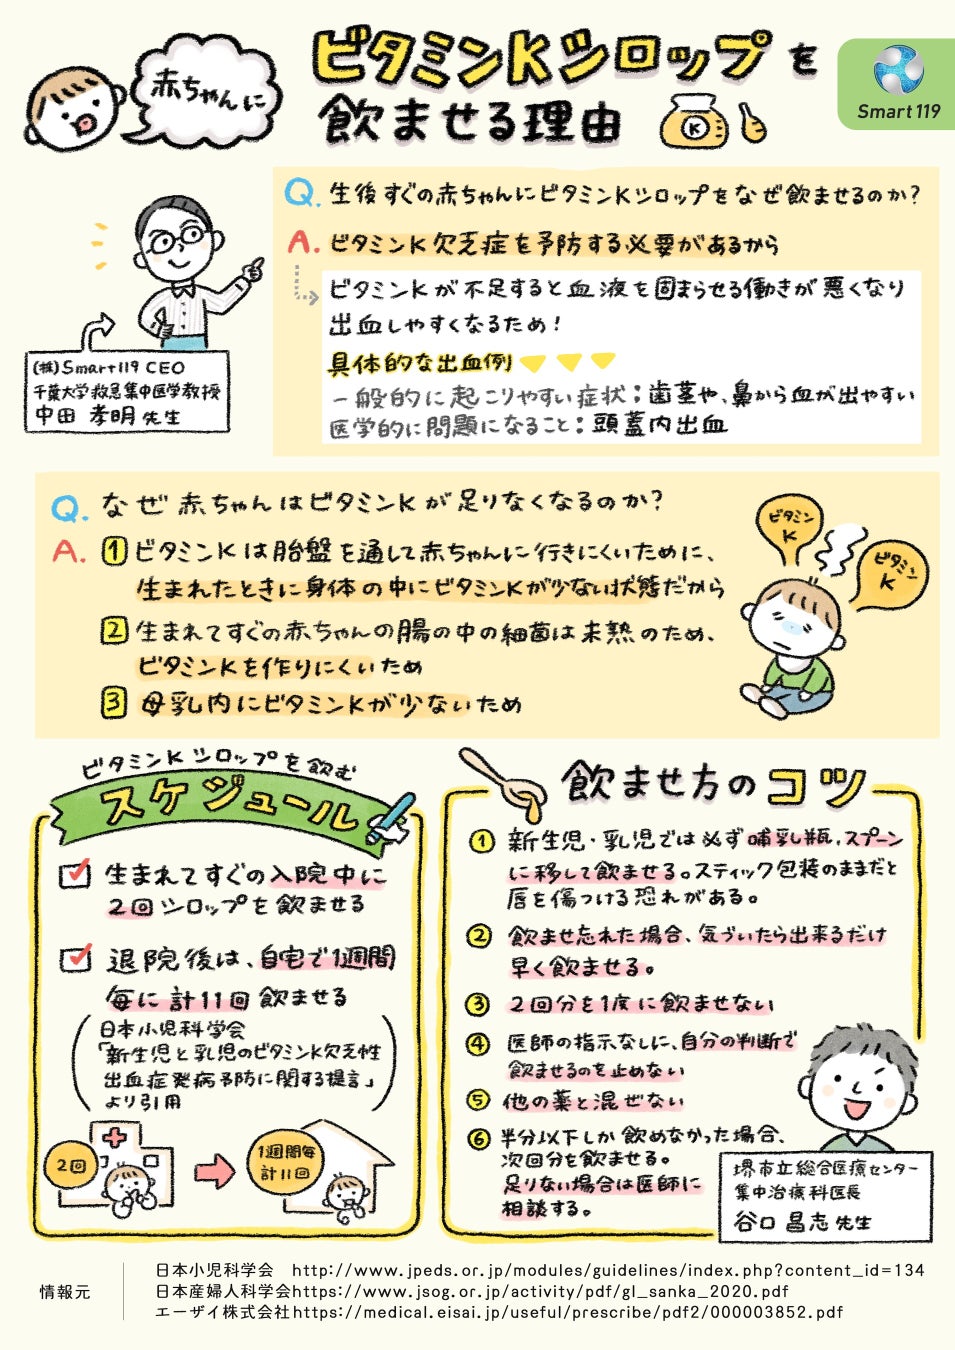 赤ちゃんに
ビタミンKシロップを
飲ませる理由
K
Smart119
Q. 生後すぐの赤ちゃんにビタミンKシロップをなぜ飲ませるのか?
A. ビタミンK欠乏症を予防する必要があるから
ビタミンKが不足すると血液を固まらせる働きが悪くなり
出血しやすくなるため!
具体的な出血例
一般的に起こりやすい症状:歯茎や、鼻から血が出やすい
医学的に問題になること:頭蓋内出血
(株)Smart119 CEO
千葉大学救急集中医学教授
中田 孝明先生
Q. なぜ赤ちゃんはビタミンKが足りなくなるのか?
A. 1 ビタミンKは胎盤を通して赤ちゃんに行きにくいために、
生まれたときに身体の中にビタミンKが少ない状態だから
2 生まれてすぐの赤ちゃんの腸の中の細菌は未熟のため、
ビタミンKを作りにくいため
3 母乳内にビタミンKが少ないため
ビタミン
K
ビタミン
K
ビタミンKシロップを飲む
スケジュール
生まれてすぐの入院中に
2回シロップを飲ませる
退院後は、自宅で1週間
毎に計11回飲ませる
(日本小児科学会
「新生児と乳児のビタミンK欠乏性
出血症発病予防に関する提言」
より引用)
2回
1週間毎
計11回
飲ませ方のコツ
1 新生児・乳児では必ず哺乳瓶、スプーン
に移して飲ませる。スティック包装のままだと
唇を傷つける恐れがある。
2 飲ませ忘れた場合、気づいたら出来るだけ
早く飲ませる。
3 2回分を1度に飲ませない
4 医師の指示なしに、自分の判断で
飲ませるのを止めない
5 他の薬と混ぜない
6 半分以下しか飲めなかった場合、
次回分を飲ませる。
足りない場合は医師に
相談する。
堺市立総合医療センター
集中治療科医長
谷口 昌志先生
情報元
日本小児科学会 http://www.jpeds.or.jp/modules/guidelines/index.php?content_id=134
日本産婦人科学会https://www.jsog.or.jp/activity/pdf/gl_sanka_2020.pdf
エーザイ株式会社https://medical.eisai.jp/useful/prescribe/pdf2/000003852.pdf